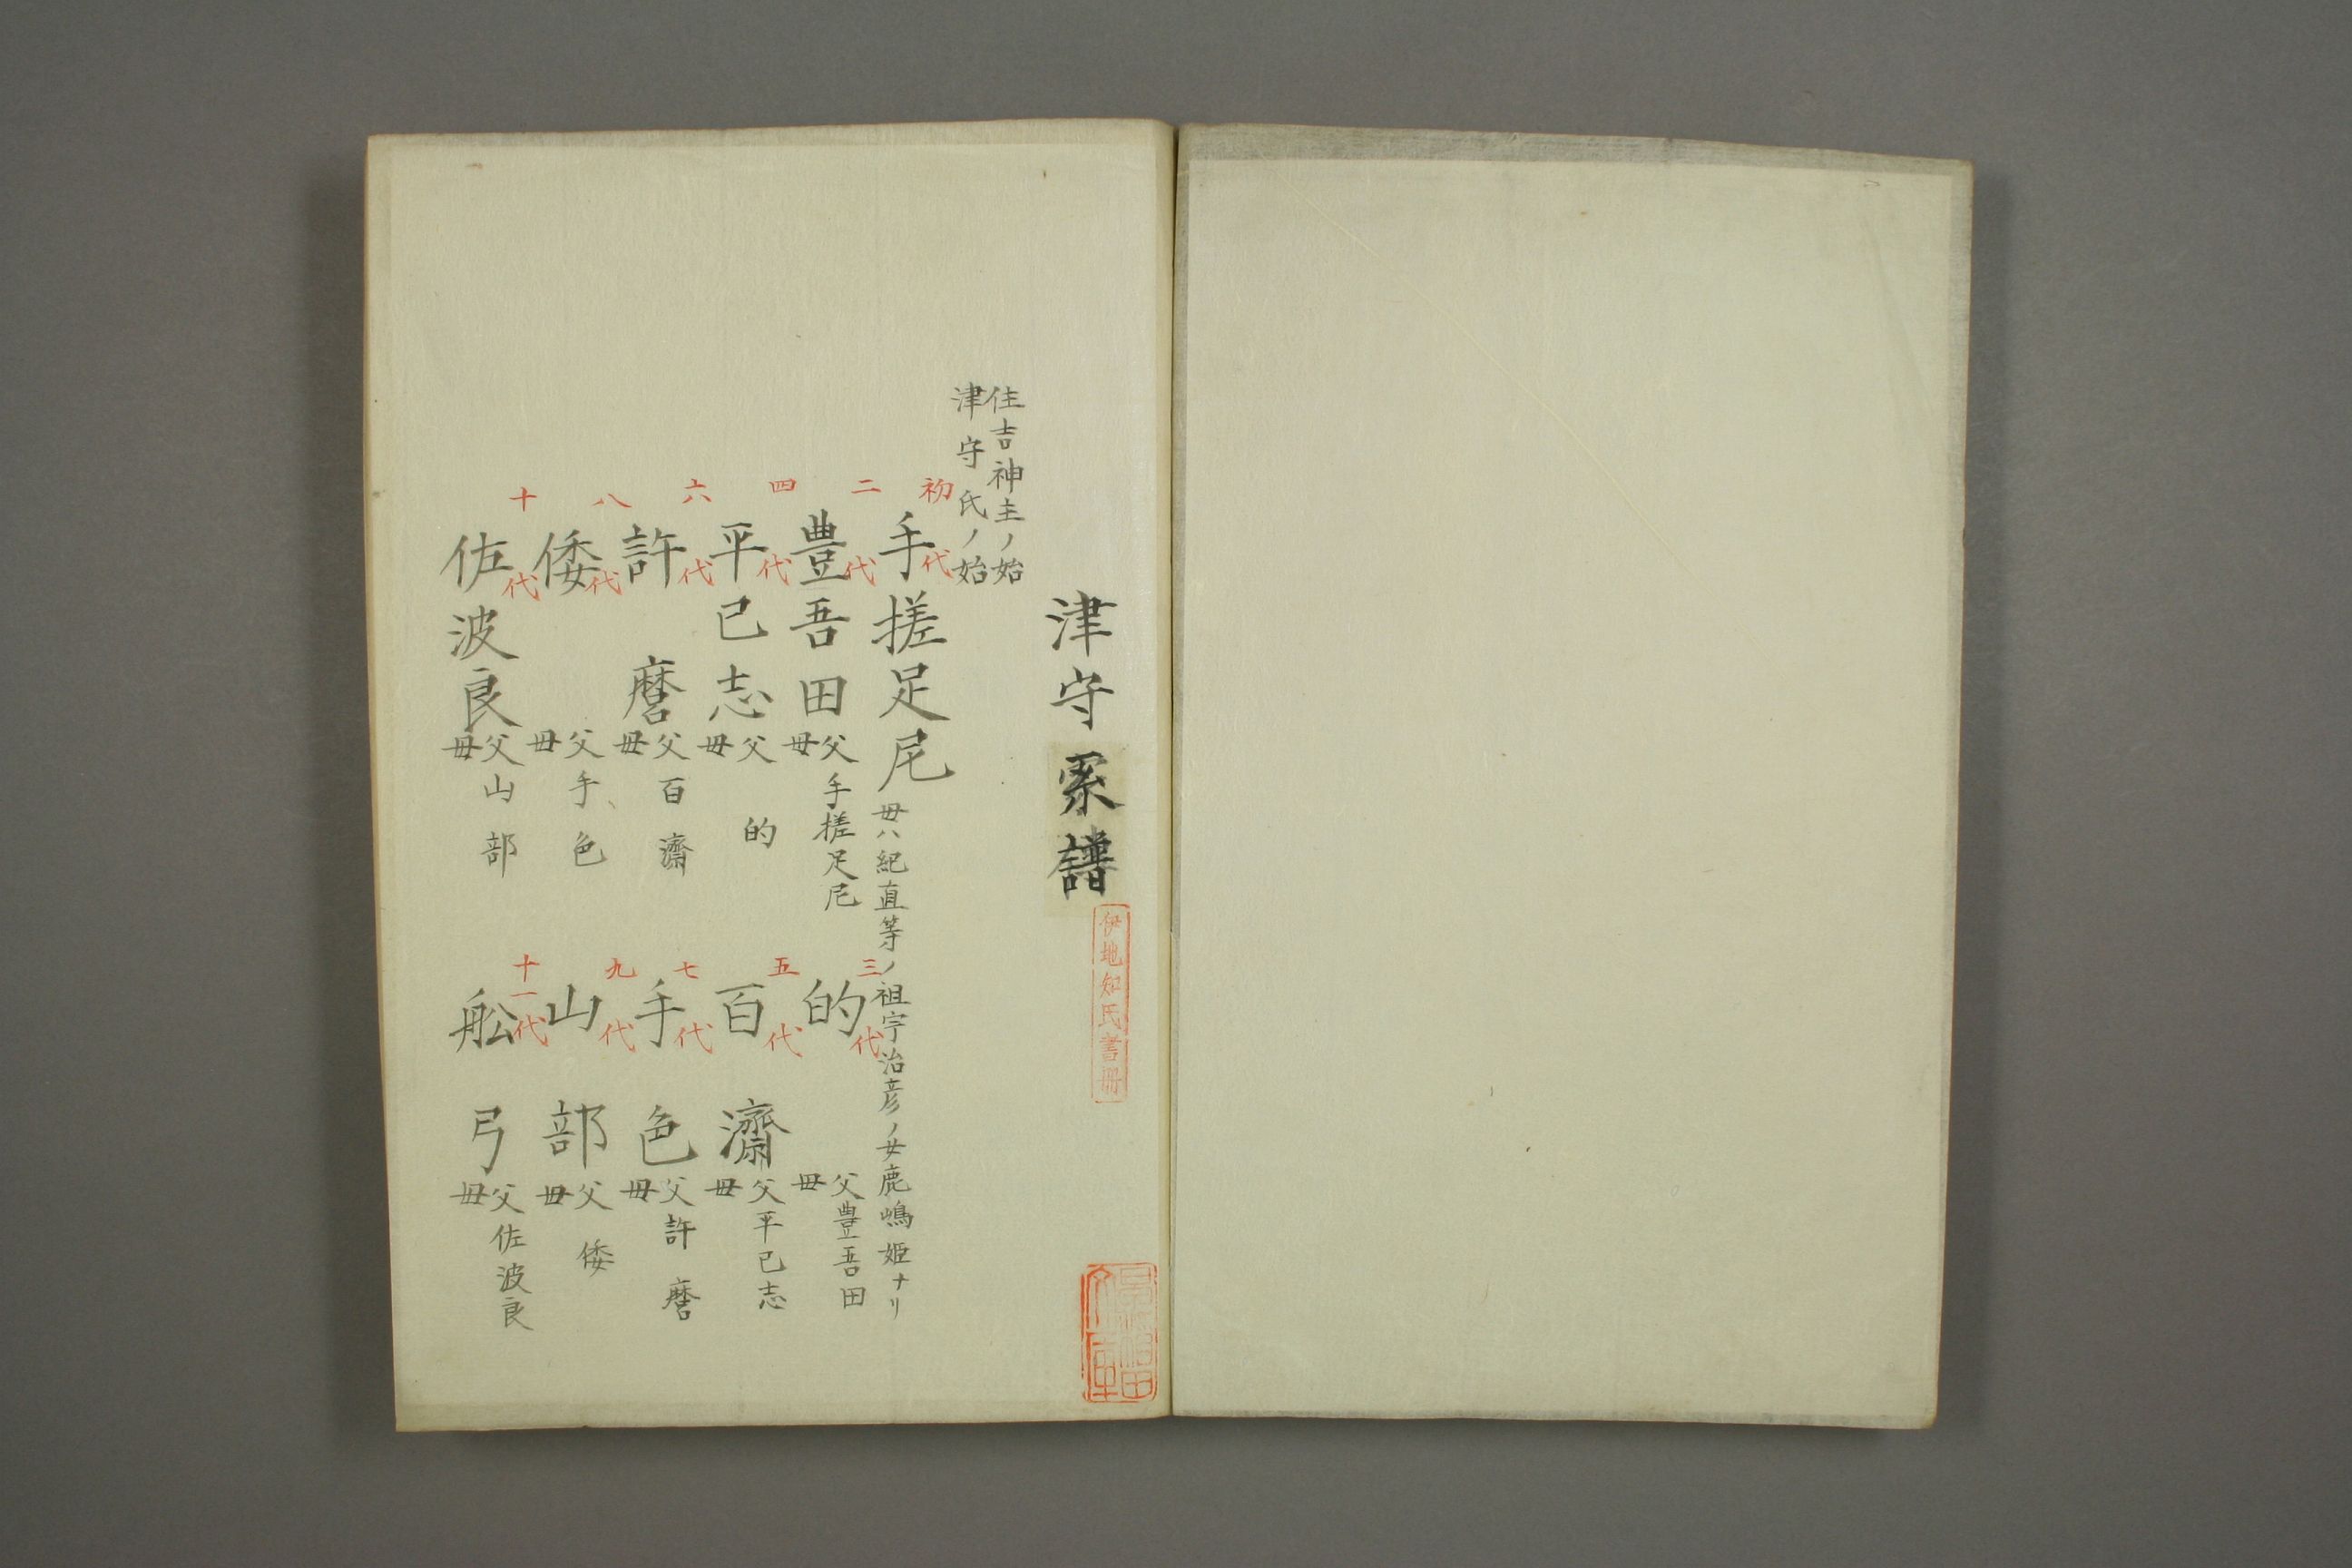 津守系譜
伊地知氏書冊
住吉神主ノ始
津守氏ノ始
初代
手搓足尼
母ハ紀直等ノ祖宇治彦ノ女鹿嶋姫ナリ
二代
豊吾田
父手搓足尼
母
三代
的
父豊吾田
母
四代
平己志
父的
母
五代
百濟
父平己志
母
六代
許麿
父百濟
母
七代
手色
父許麿
母
八代
倭
父手色
母
九代
山部
父倭
母
十代
佐波良
父山部
母
十一代
舩弓
父佐波良
母